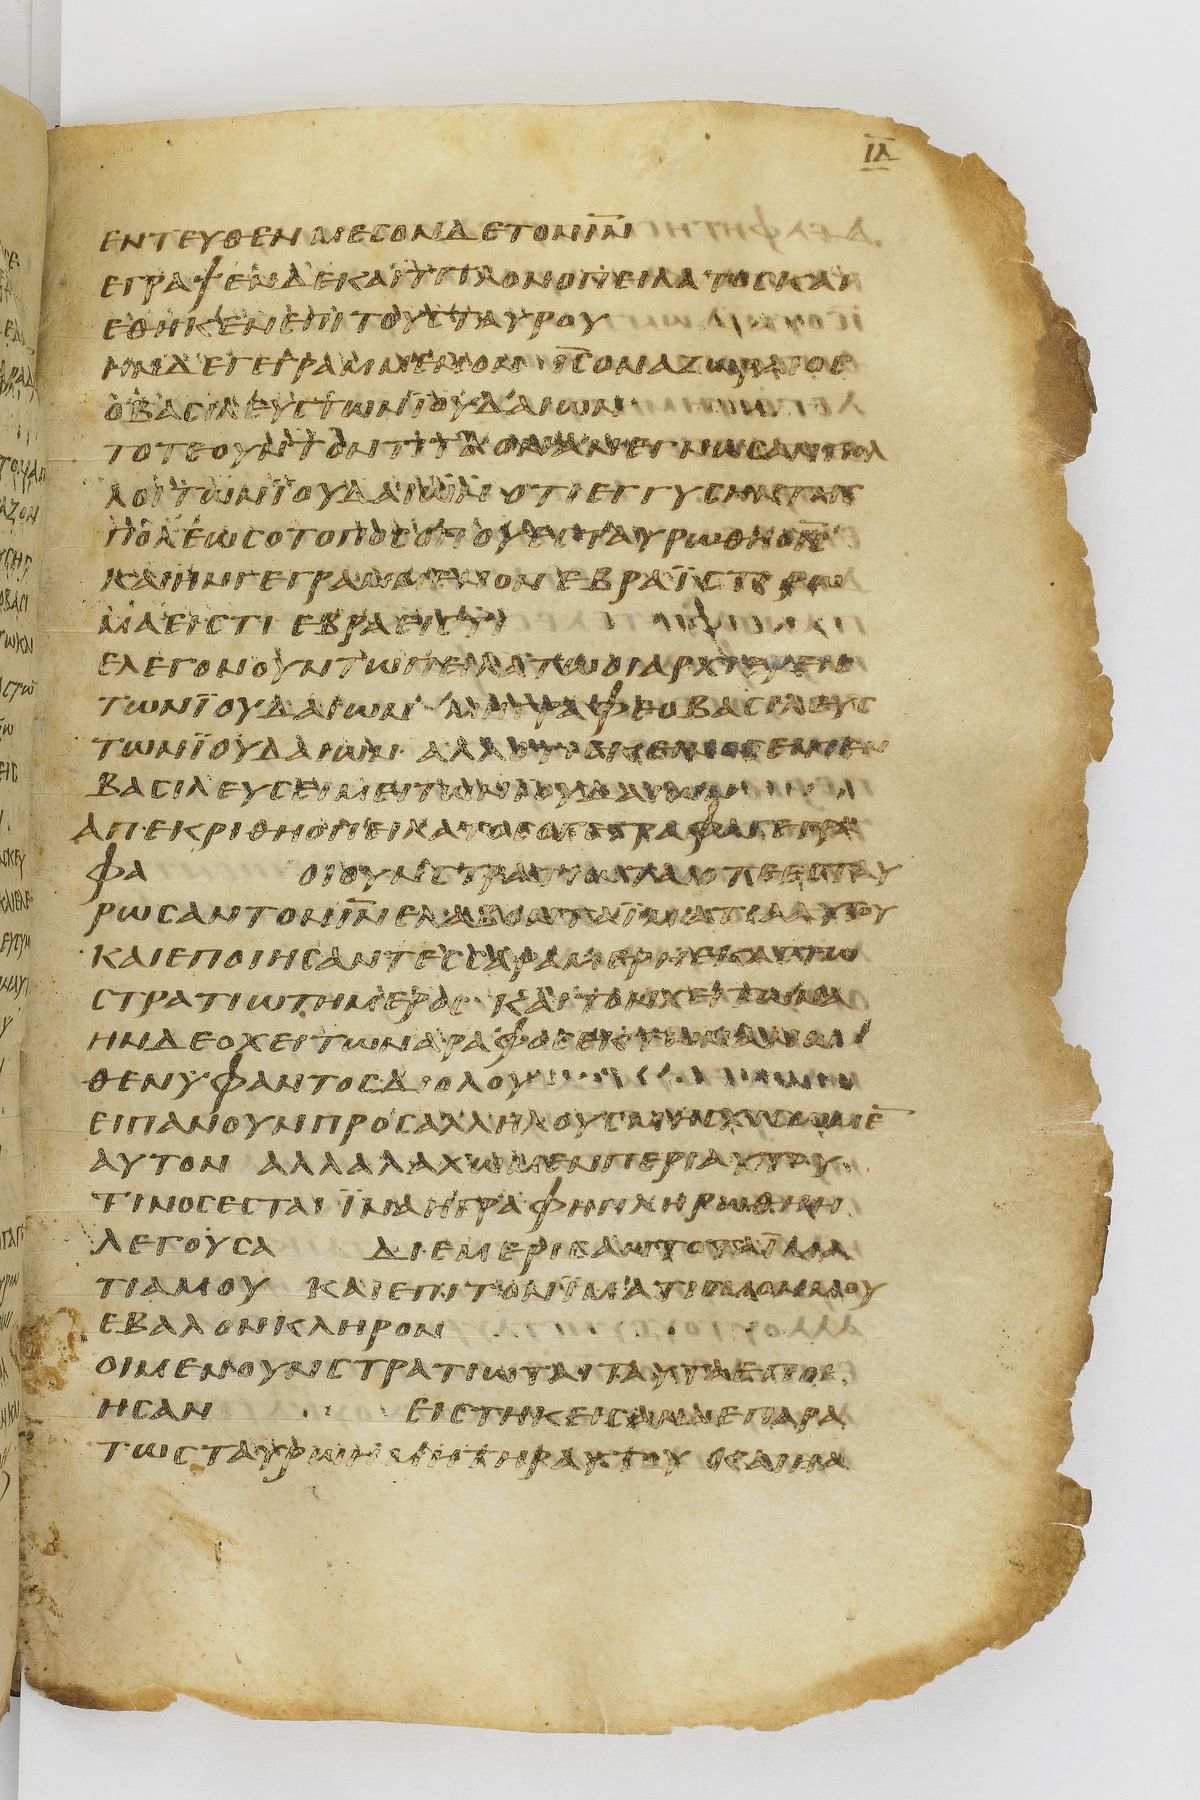 ΙΔ
ΕΝΤΕΥΘΕΝ ΜΕϹΟΝ ΔΕ ΤΟΝ ΙΝ̅
ΕΓΡΑΨΕΝ ΔΕ ΚΑΙ ΤΙΤΛΟΝ Ο ΠΕΙΛΑΤΟϹ ΚΑΙ
ΕΘΗΚΕΝ ΕΠΙ ΤΟΥ ϹΤΑΥΡΟΥ
ΗΝ ΔΕ ΓΕΓΡΑΜΜΕΝΟΝ ΙϹ̅ Ο ΝΑΖΩΡΑΙΟϹ
Ο ΒΑϹΙΛΕΥϹ ΤΩΝ ΪΟΥΔΑΙΩΝ
ΤΟΤΕ ΟΥΝ ΤΟΝ ΤΙΤΛΟΝ ΑΝΕΓΝΩϹΑΝ ΠΟΛ
ΛΟΙ ΤΩΝ ΪΟΥΔΑΙΩΝ ΟΤΙ ΕΓΓΥϹ ΗΝ ΤΗϹ
ΠΟΛΕΩϹ Ο ΤΟΠΟϹ ΟΠΟΥ ΕϹΤΑΥΡΩΘΗ Ο ΙϹ̅
ΚΑΙ ΗΝ ΓΕΓΡΑΜΜΕΝΟΝ ΕΒΡΑΪϹΤΙ ΡΩ
ΜΑΕΙϹΤΙ
ΕΛΕΓΟΝ ΟΥΝ ΤΩ ΠΕΙΛΑΤΩ ΟΙ ΑΡΧΙΕΡΕΙϹ
ΤΩΝ ΪΟΥΔΑΙΩΝ ΜΗ ΓΡΑΦΕ Ο ΒΑϹΙΛΕΥϹ
ΤΩΝ ΪΟΥΔΑΙΩΝ ΑΛΛ ΟΤΙ ΕΚΕΙΝΟϹ ΕΙΠΕΝ
ΒΑϹΙΛΕΥϹ ΕΙΜΕΙ ΤΩΝ ΙΟΥΔΑΙΩΝ
ΑΠΕΚΡΙΘΗ Ο ΠΕΙΛΑΤΟϹ Ο ΓΕΓΡΑΦΑ ΓΕΓΡΑ
ΦΑ ΟΙ ΟΥΝ ϹΤΡΑΤΙΩΤΑΙ ΟΤΕ ΕϹΤΑΥ
ΡΩϹΑΝ ΤΟΝ ΙΝ̅ ΕΛΑΒΟΝ ΤΑ ΪΜΑΤΙΑ ΑΥΤΟΥ
ΚΑΙ ΕΠΟΙΗϹΑΝ ΤΕϹϹΑΡΑ ΜΕΡΗ ΕΚΑϹΤΩ
ϹΤΡΑΤΙΩΤΗ ΜΕΡΟϹ ΚΑΙ ΤΟΝ ΧΕΙΤΩΝΑ
ΗΝ ΔΕ Ο ΧΕΙΤΩΝ ΑΡΑΦΟϹ ΕΚ ΤΩΝ ΑΝΩ
ΘΕΝ ΥΦΑΝΤΟϹ ΔΙ ΟΛΟΥ
ΕΙΠΑΝ ΟΥΝ ΠΡΟϹ ΑΛΛΗΛΟΥϹ ΜΗ ϹΧΙϹΩΜΕ̅
ΑΥΤΟΝ ΑΛΛΑ ΛΑΧΩΜΕΝ ΠΕΡΙ ΑΥΤΟΥ
ΤΙΝΟϹ ΕϹΤΑΙ ΪΝΑ Η ΓΡΑΦΗ ΠΛΗΡΩΘΗ Η
ΛΕΓΟΥϹΑ ΔΙΕΜΕΡΙϹΑΝΤΟ ΤΑ ΪΜΑ
ΤΙΑ ΜΟΥ ΚΑΙ ΕΠΙ ΤΟΝ ΪΜΑΤΙϹΜΟΝ ΜΟΥ
ΕΒΑΛΟΝ ΚΛΗΡΟΝ
ΟΙ ΜΕΝ ΟΥΝ ϹΤΡΑΤΙΩΤΑΙ ΤΑΥΤΑ ΕΠΟΙ
ΗϹΑΝ ΕΙϹΤΗΚΕΙϹΑΝ ΔΕ ΠΑΡΑ
ΤΩ ϹΤΑΥΡΩ Η ΜΗΤΗΡ ΑΥΤΟΥ ΚΑΙ Η Α